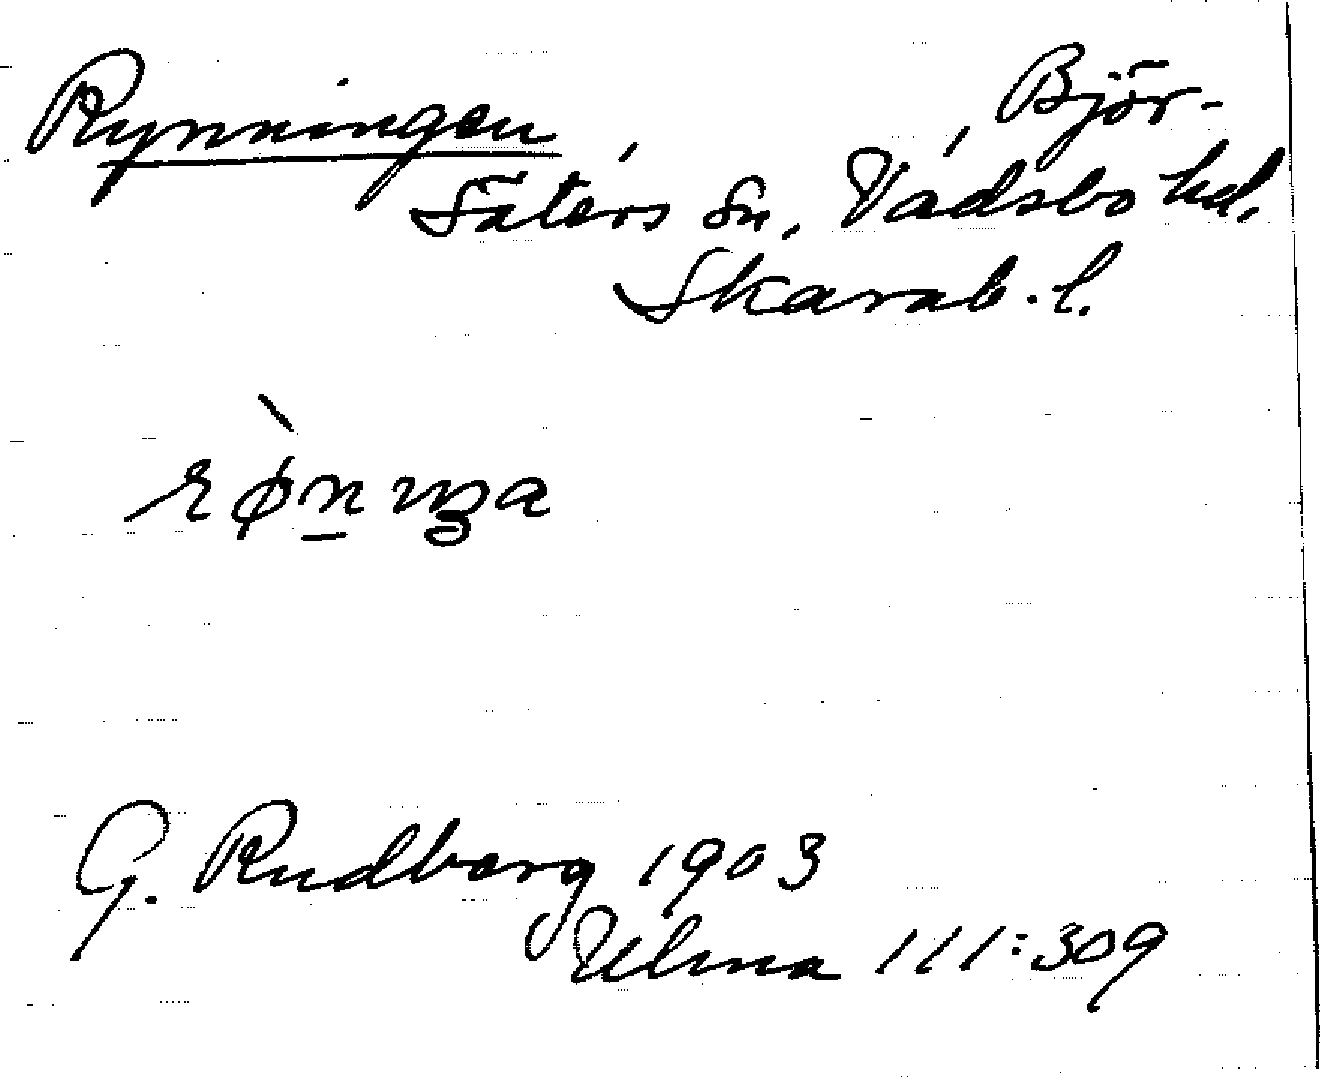 Rynningen, , Björ-
säters sn, Vadsbo hd,
Skarab. l.
G. Rudberg 1903
Ulma 111:309